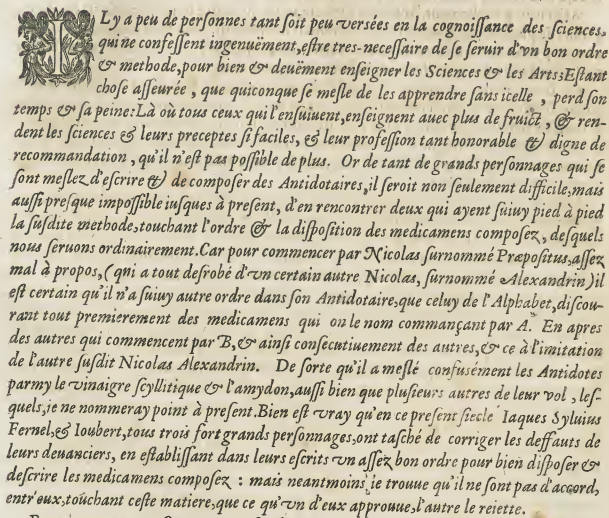 IL y a peu de personnes tant soit peu versées en la cognoissance des sciences,
qui ne confessent ingenuëment, estre tres-necessaire de se seruir d'vn bon ordre
& methode, pour bien & deuëment enseigner les Sciences & les Arts: Estant
chose asseurée, que quiconque se mesle de les apprendre sans icelle, perd son
temps & sa peine: Là où tous ceux qui l'ensuiuent, enseignent auec plus de fruict, & ren-
dent les sciences & leurs preceptes si faciles, & leur profession tant honorable & digne de
recommandation, qu'il n'est pas possible de plus. Or de tant de grands personnages qui se
sont meslez d'escrire & de composer des Antidotaires, il seroit non seulement difficile, mais
aussi presque impossible iusques à present, d'en rencontrer deux qui ayent suiuy pied à pied
la susdite methode, touchant l'ordre & la disposition des medicamens composez, desquels
nous seruons ordinairement. Car pour commencer par Nicolas surnommé Præpositus, assez
mal à propos, (qni a tout desrobé d'vn certain autre Nicolas, surnommé Alexandrin) il
est certain qu'il n'a suiuy autre ordre dans son Antidotaire, que celuy de l'Alphabet, discou-
rant tout premierement des medicamens qui on le nom commançant par A. En apres
des autres qui commencent par B, & ainsi consecutiuement des autres, & ce à l'imitation
de l'autre susdit Nicolas Alexandrin. De sorte qu'il a meslé confusément les Antidotes
parmy le vinaigre scyllitique & l'amydon, aussi bien que plusieurs autres de leur vol, les-
quels, ie ne nommeray point à present. Bien est vray qu'en ce present siecle Iaques Syluius
Fernel, & Ioubert, tous trois fort grands personnages, ont tasché de corriger les deffauts de
leurs deuanciers, en establissant dans leurs escrits vn assez bon ordre pour bien disposer &
descrire les medicamens composez: mais neantmoins ie trouue qu'il ne sont pas d'accord,
entr'eux, touchant ceste matiere, que ce qu'vn d'eux approuue, l'autre le reiette.